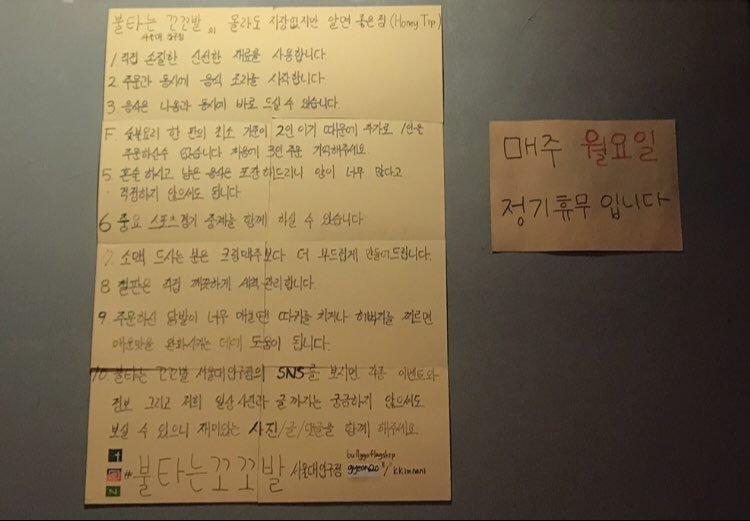 불타는 꼬꼬발의 몰라도 지장없지만 알면 좋은 점 (Honey Tip)
서울대입구점
1 직접 손질한 신선한 재료를 사용합니다.
2 주문과 동시에 음식 조리를 시작합니다.
3 음식은 나옴과 동시에 바로 드실 수 있습니다.
F. 숯불요리 한 편의 최소 기준이 2인 이기 때문에 추가로 1인은
주문하실수 없습니다 처음에 3인 주문 기억해주세요.
5 혼술 하시고 남은 음식은 포장 해드리니 양이 너무 많다고
걱정하지 않으셔도 됩니다.
6 중요 스포츠 경기 중계를 함께 하실 수 있습니다
7. 소맥 드시는 분은 크림맥주보다 더 부드럽게 만들어드립니다.
8 불판은 직접 깨끗하게 세척 관리합니다.
9. 주문하신 닭발이 너무 매울땐 따귀를 치거나 허벅지를 찌르면
매운맛을 완화시키는데에 도움이 됩니다.
10. 불타는 꼬꼬발 서울대입구점의 SNS를 보시면 각종 이벤트와
정보 그리고 저희 일상 사진과 글 까지는 궁금하지 않으셔도
보실 수 있으니 재미있는 사진/글/댓글을 함께 해주세요.
#불타는꼬꼬발 서울대입구점
bullggoflagshop
kkimnani
매주 월요일
정기휴무 입니다